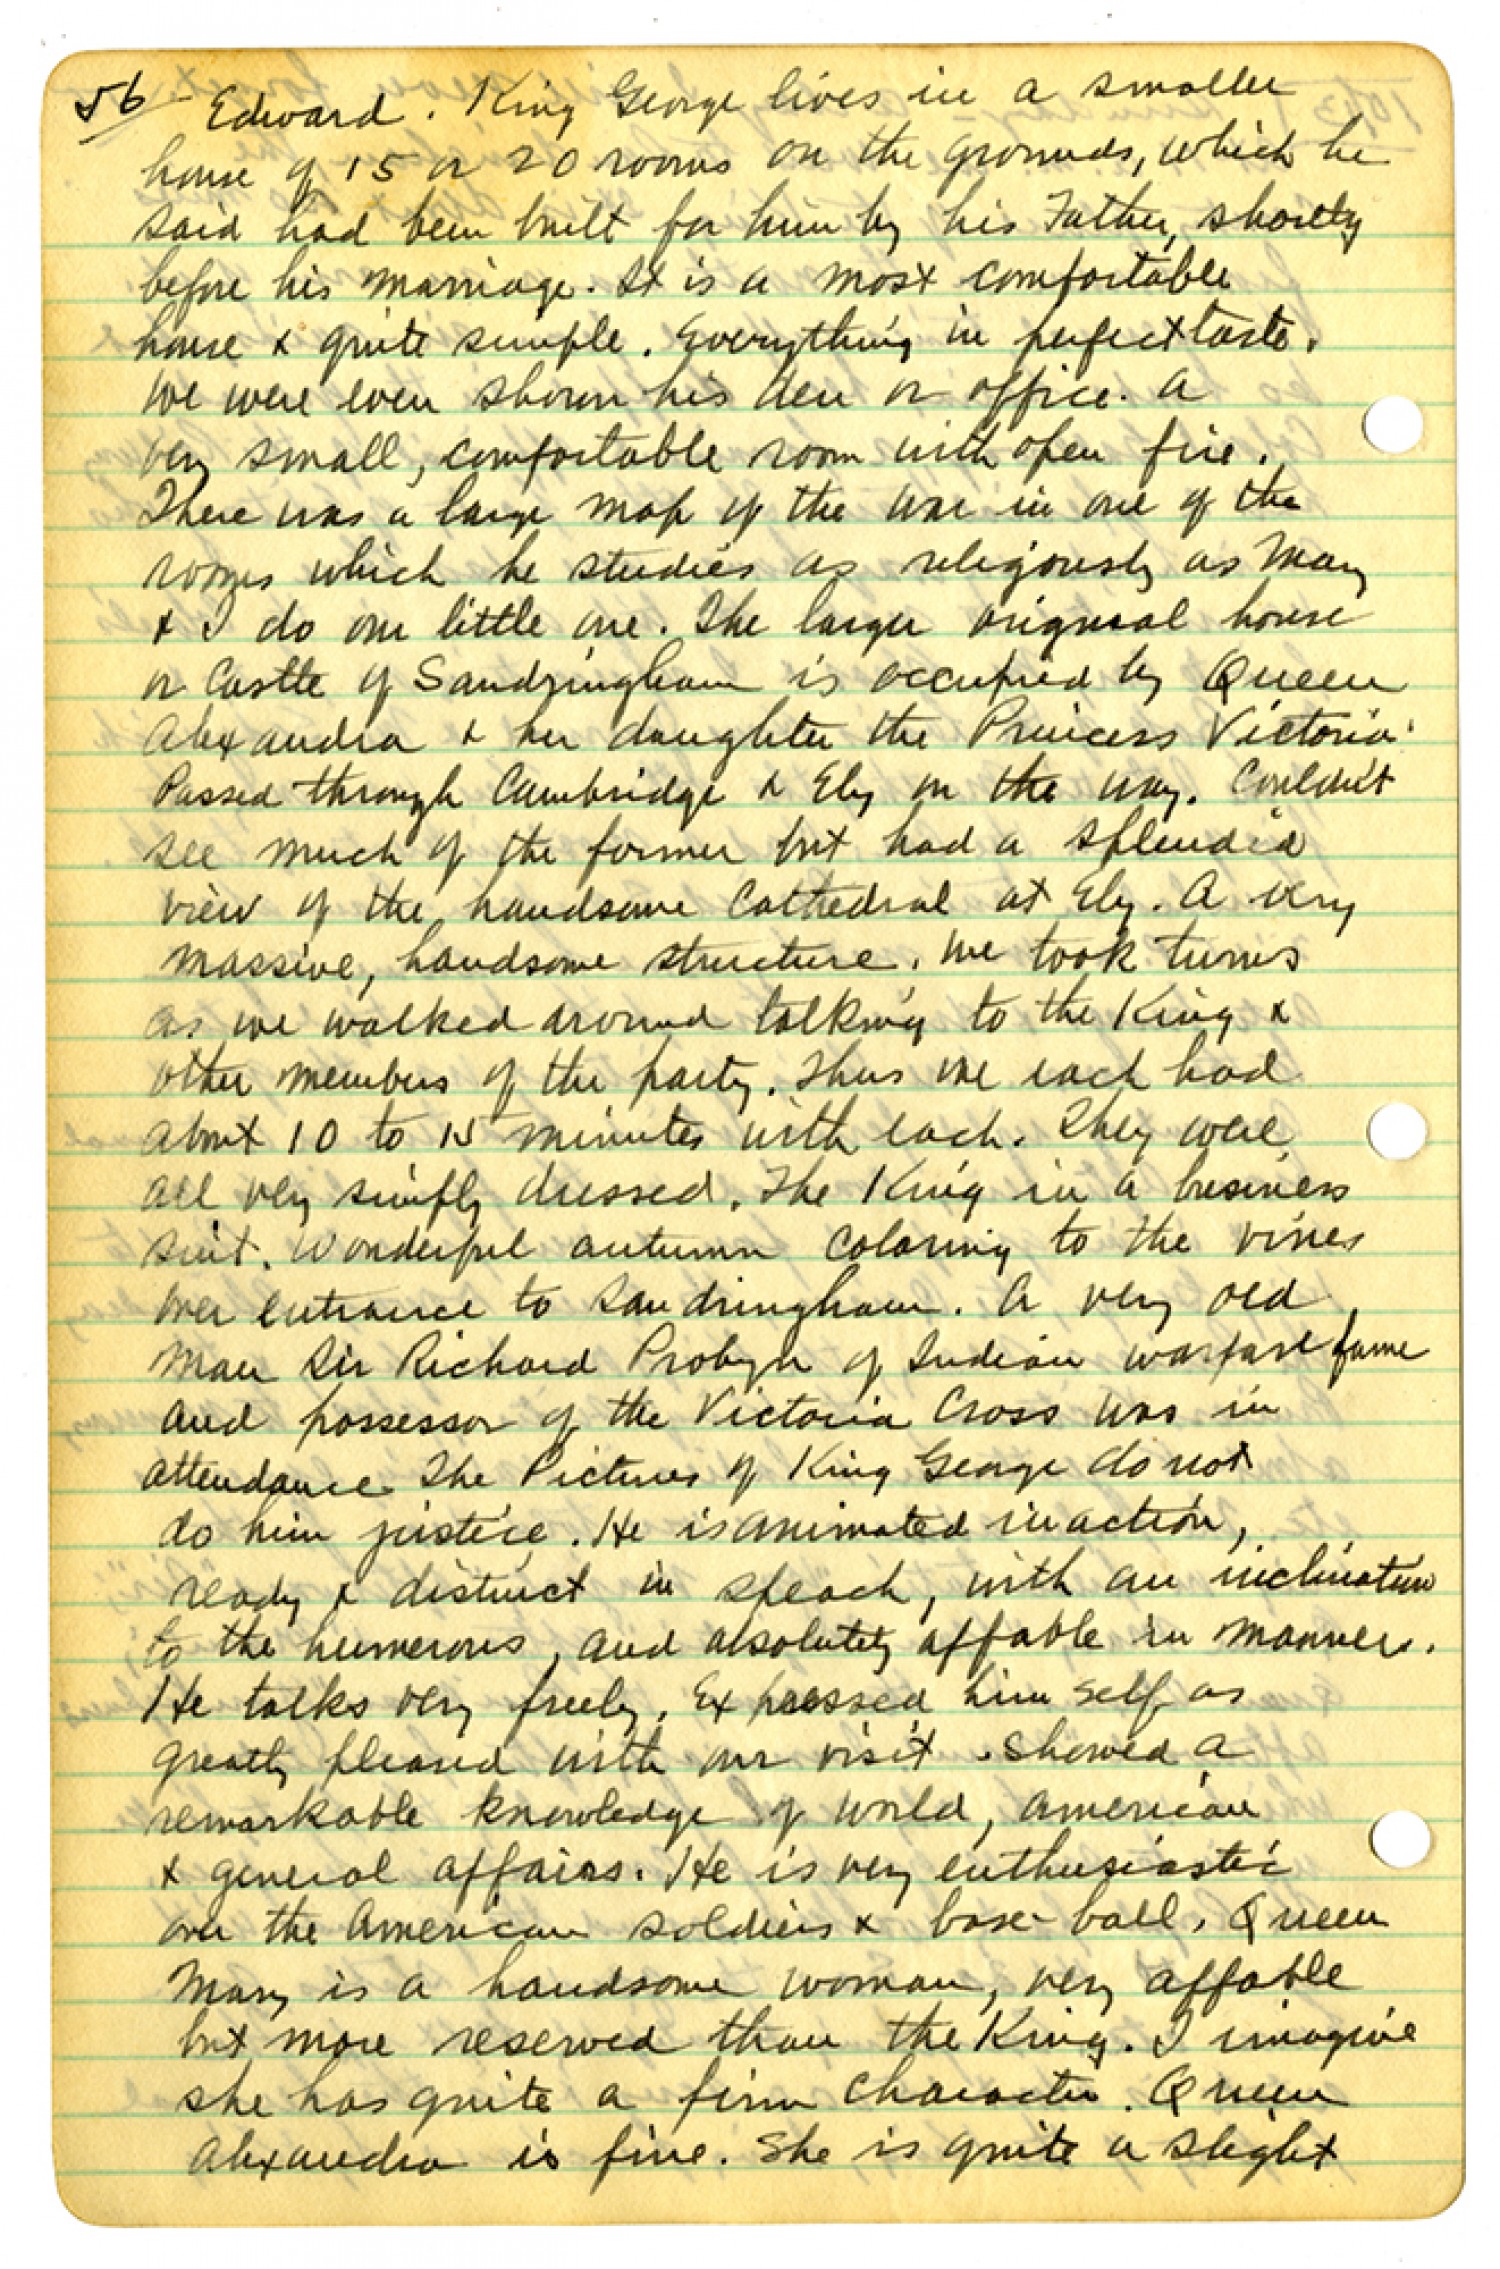 56 Edward. King George lives in a smaller
house of 15 or 20 rooms on the grounds, which he
said had been built for him by his Father, shortly
before his marriage. It is a most comfortable
house & quite simple. Everything in perfect taste.
We were even shown his den or office. A
very small, comfortable room with open fire.
There was a large map of the war in one of the
rooms which he studies as religiously as Mary
& I do our little one. The larger original house
or Castle of Sandringham is occupied by Queen
Alexandra & her daughter the Princess Victoria.
Passed through Cambridge & Ely on the way. Couldn't
see much of the former but had a splendid
view of the handsome Cathedral at Ely. A very
massive, handsome structure. We took turns
as we walked around talking to the King &
other members of the party. Thus we each had
about 10 to 15 minutes with each. They were
all very simply dressed. The King in a business
suit. Wonderful autumn coloring to the vines
over entrance to Sandringham. A very old
man Sir Richard Probyn of Indian warfare fame
and possessor of the Victoria Cross was in
attendance. The Pictures of King George do not
do him justice. He is animated in action,
ready & distinct in speach, with an inclination
to the humerous, and absolutely affable in manner.
He talks very freely. Expressed him self as
greatly pleased with our visit. Showed a
remarkable knowledge of world, American
& general affairs. He is very enthusiastic
over the American soldiers & base-ball. Queen
Mary is a handsome woman, very affable
but more reserved than the King. I imagine
she has quite a firm character. Queen
Alexandra is fine. She is quite a slight